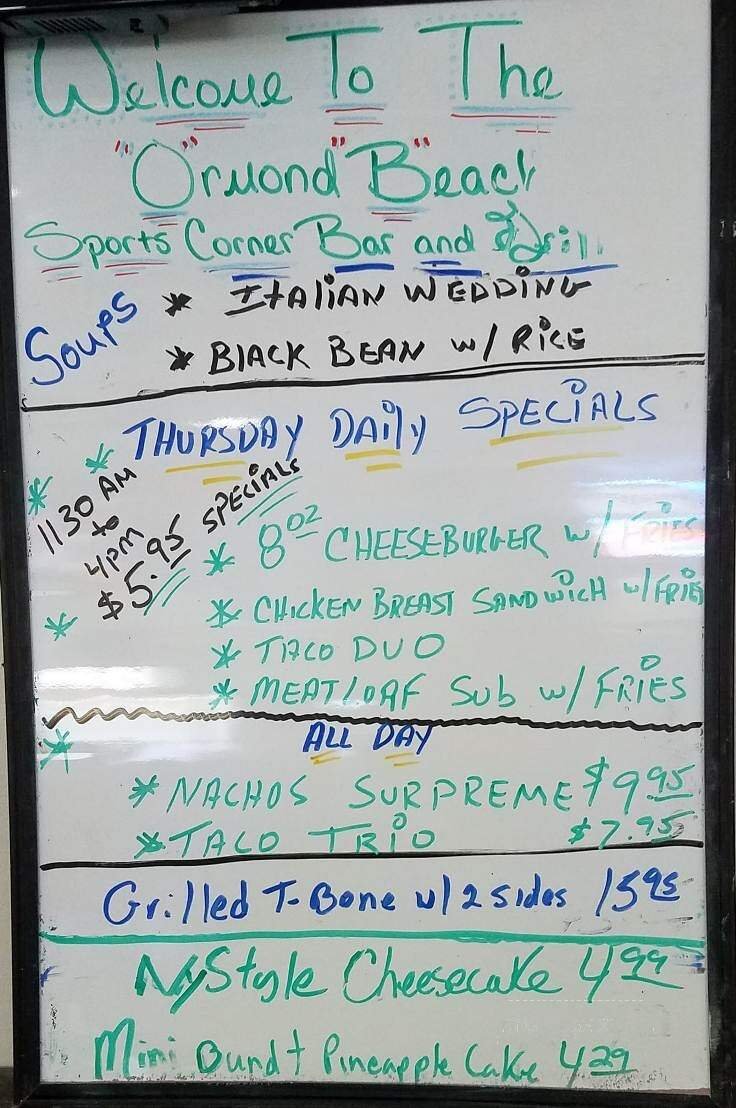 Welcome To The
"Ormond" Beach"
Sports Corner Bar and Grill
Soups * ITALIAN WEDDING
* BLACK BEAN w/ RICE
THURSDAY DAILY SPECIALS
1130 AM
to
4PM
$5.95 SPECIALS
* 8oz CHEESEBURGER w/ FRIES
* CHICKEN BREAST SANDWICH w/ FRIES
* TACO DUO
* MEATLOAF SUB w/ FRIES
ALL DAY
* NACHOS SURPREME $9.95
* TACO TRIO $7.95
Grilled T-Bone w/ 2 sides 15.95
Ny Style Cheesecake 4.99
Mini Bundt Pineapple Cake 4 29